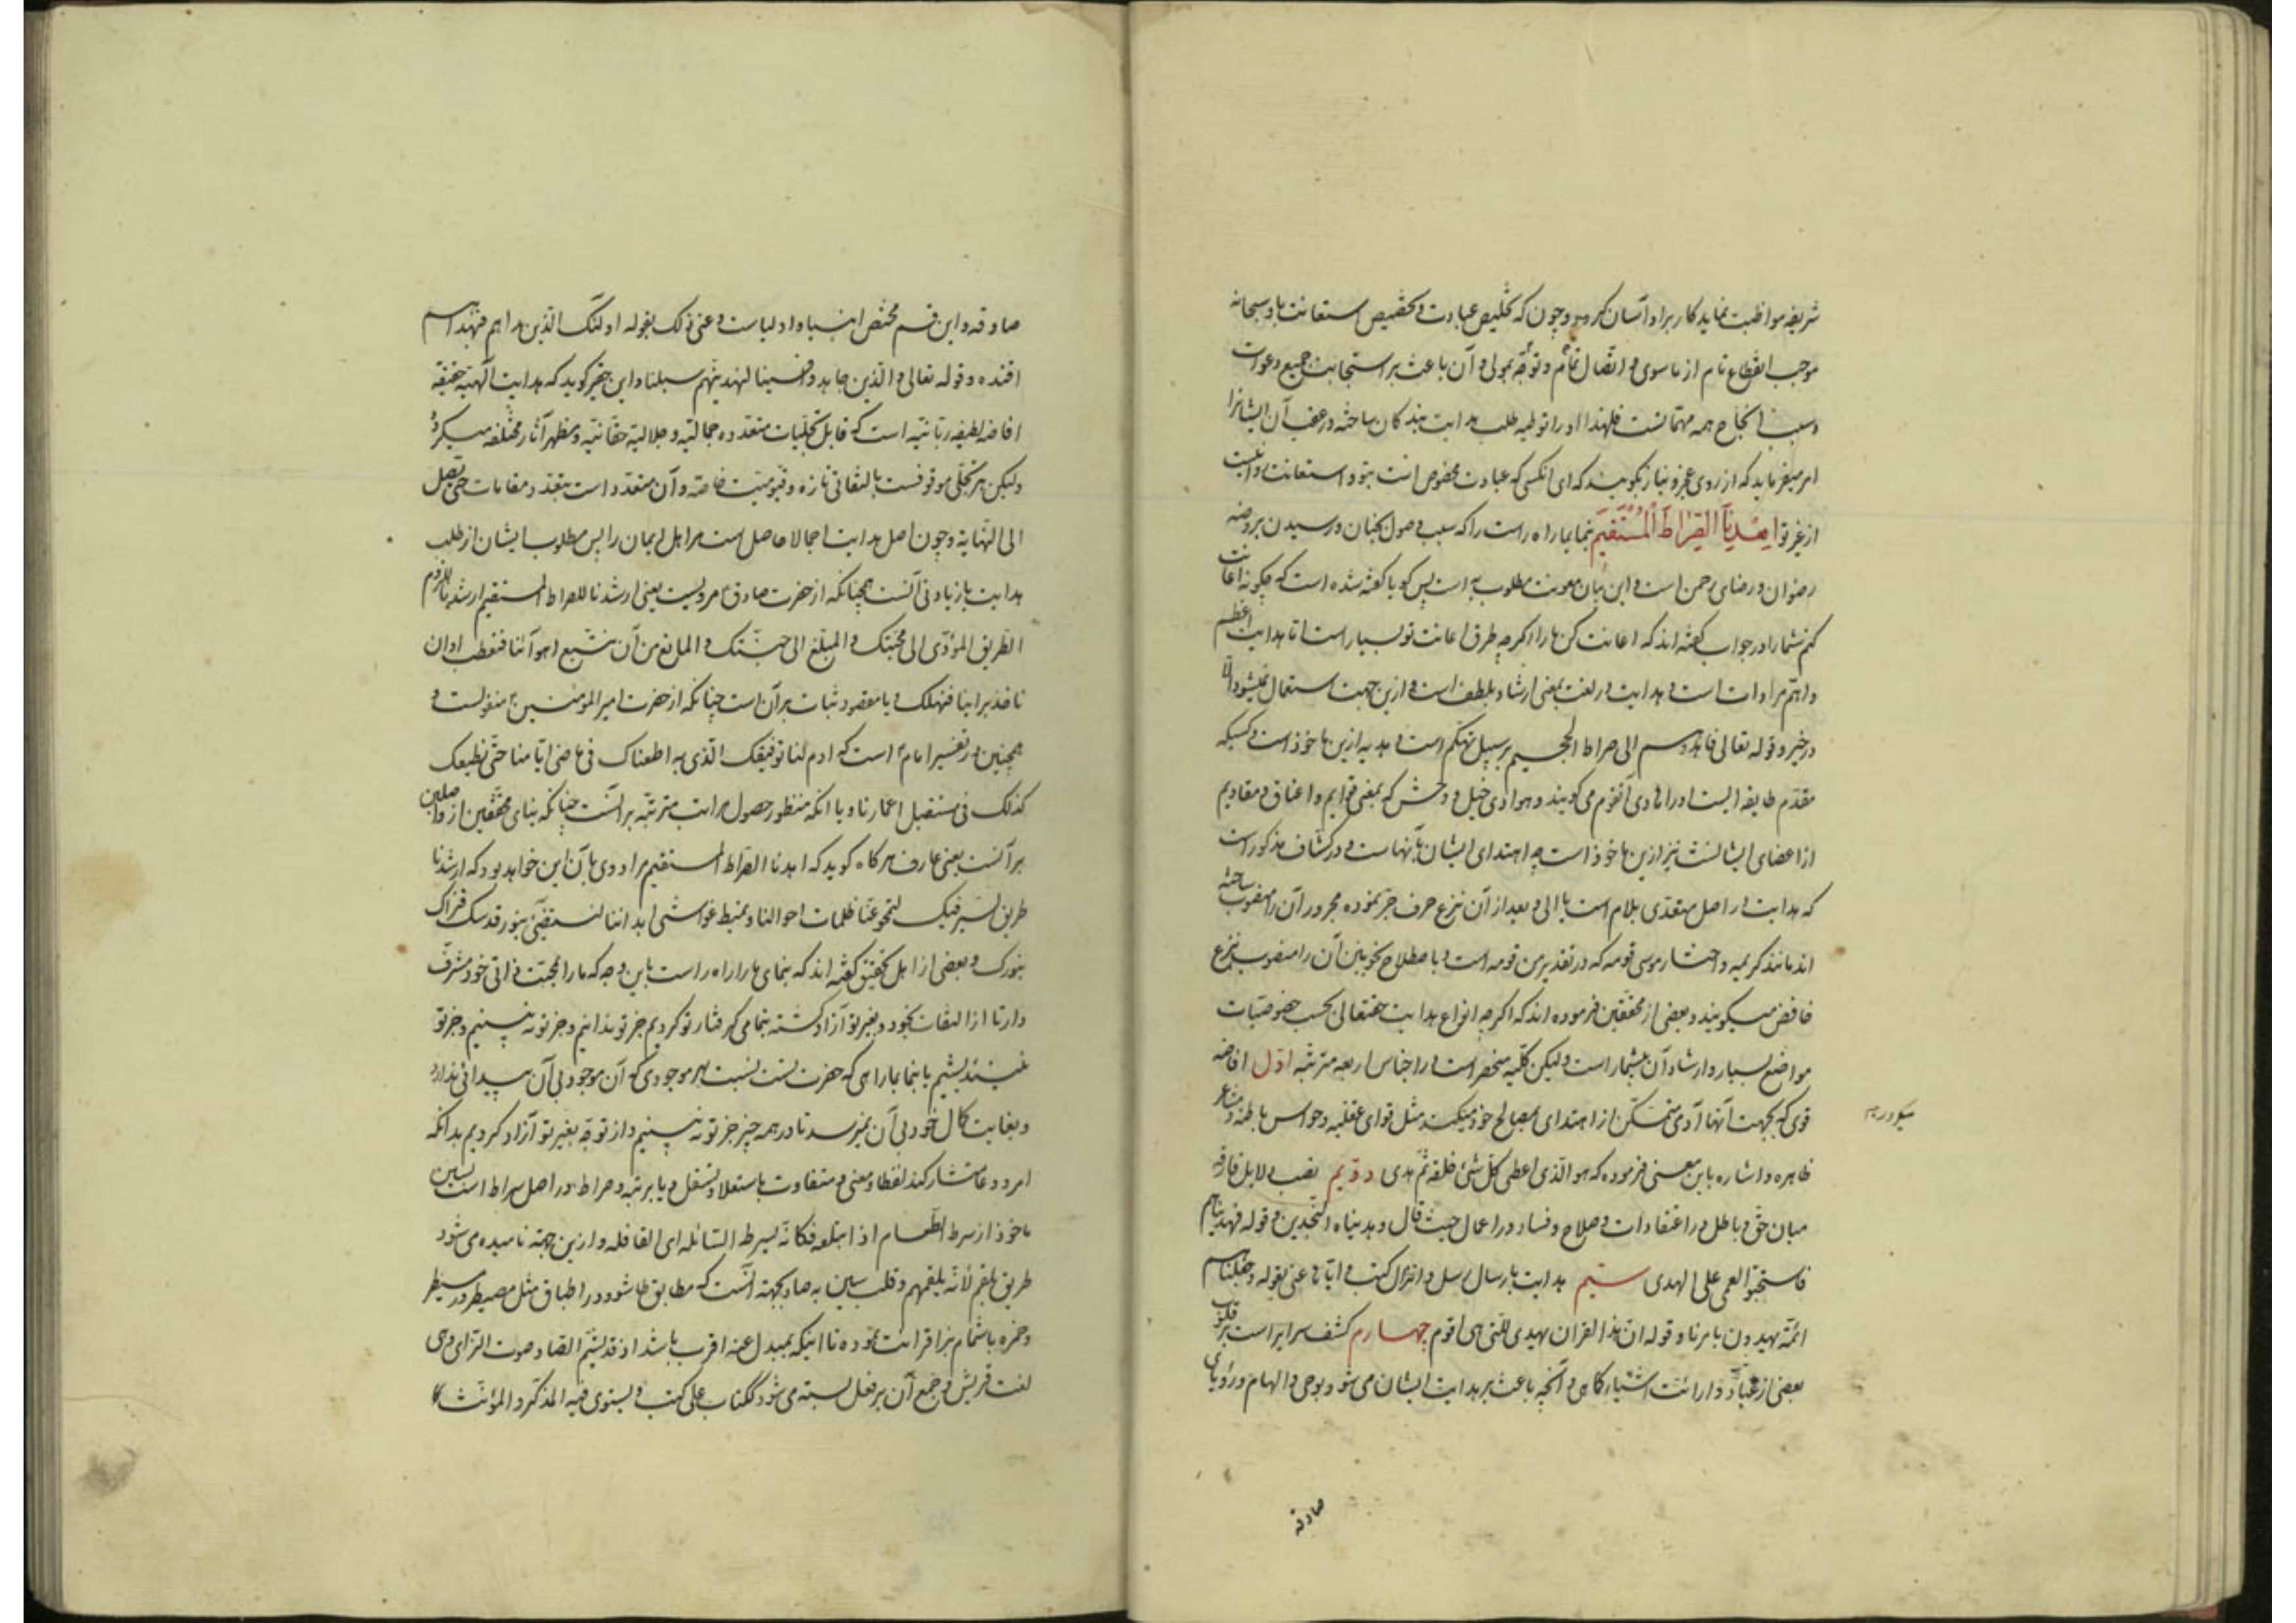 شریفه مواظبت نماید کار بر او آسان کردد و چون که تخلیص عبادت و تخصیص استعانت باو سبحانه
موجب انقطاع تام از ما سوی و اتصال تمام و توجه بمولی و آن باعث بر استجابت جمیع دعوات
و سبب انجاح همه مهماتست فلهذا او را توطیه طلب هدایت بندکان ساخته و در عقب آن ایشانرا
امر میفرماید که از روی عجز و نیاز بکویند که ای آنکسی که عبادت مخصوص است بتو و استعانت و نیست
از غیر تو اهدنا الصراط المستقیم بنما بما راه راست را که سبب وصول بجنان و رسیدن بروضه
رضوان و رضای رحمن است و این بیان معونت مطلوب به است پس کویا کفته شده است که چکونه اعانت
کنم شما را در جواب کفته اند که اعانت کن ما را اکرچه طرق اعانت تو بسیار است اما هدایت اعظم
و اهم مرادات است و هدایت در لغت بمعنی ارشاد بلطف است و ازین جهت استعمال نمیشود الا
در خیر و قوله تعالی فاهدوهم الی صراط الجحیم بر سبیل تهکم است و هدیه ازین ماخوذ است و کسیکه
مقدم طایفه ایست او را هادی آنقوم می کویند و هوادی خیل و وحش که بمعنی قوایم و اعناق و مقادیم
از اعضای ایشانست نیز ازین ماخوذ است چه اهتدای ایشان بآنهاست و در کشاف مذکور است
که هدایت در اصل متعدی بلام است یا الی و بعد از آن نزع حرف جر نموده مجرور آن را منصوب ساخته
اند مانند کریمه و اختار موسی قومه که در تقدیر من قومه است و باصطلاح نحویین آن را منصوب بنزع
خافض میکویند و بعضی از محققین فرموده اند که اکرچه انواع هدایت حقتعالی بحسب خصوصیات
مواضع بسیار و ارشاد آن بیشمار است ولیکن کلیه منحصر است در اجناس اربعه مترتبه اول افاضه
قوی که بجهت آنها آدمی متمکن از اهتدای بمصالح خود میکند مثل قوای عقلیه و حواس باطنه و مشاعر
ظاهره و اشاره باین معنی فرموده که هو الذی اعطی کل شئ خلقه ثم هدی دویم نصب دلایل فارقه
میان حق و باطل در اعتقادات و صلاح و فساد در اعمال حیث قال و هدیناه النجدین و قوله فهدیناهم
فاستحبوا العمی علی الهدی سیم هدایت بارسال رسل و انزال کتب و ایاها عنی بقوله و جعلناهم
ائمة یهدون بامرنا و قوله ان هذا القرآن یهدی للتی هی اقوم چهارم کشف سرایر است بر قلوب
بعضی از عباد و ارائت اشیاء کما هی و آنچه باعث بر هدایت ایشان می شود بوحی و الهام و رؤیای
صادقه
صادقه و این قسم مختص انبیا و اولیاست و عنی ذلک بقوله اولئک الذین هداهم فبهداهم
اقتده و قوله تعالی و الذین جاهدوا فینا لنهدینهم سبلنا و این حقیر کوید که هدایت الهیه حقیقة
افاضه لطیفه ربانیه است که قابل تجلیات متعدده جمالیه و جلالیه حقانیه و مظهر آثار مختلفه میکردد
ولیکن هر تجلی موقوفست بالتفاتی تازه و قیومیت خاصه و آن متعدد است بتعدد مقامات حتی یصل
الی النهایة و چون اصل هدایت اجمالا حاصل است مر اهل ایمان را پس مطلوب ایشان از طلب
هدایت یا زیادتی آنست همچنانکه از حضرت صادق ع مرویست یعنی ارشدنا للصراط المستقیم ارشدنا للزوم
الطریق المؤدی الی محبتک و المبلغ الی جنتک و المانع من ان نتبع اهوائنا فنعطب او ان
ناخذ بارائنا فنهلک و یا مقصود ثبات بر آن است چنانکه از حضرت امیر المؤمنین ع منقولست و
همچنین در تفسیر امام ع است که ادم لنا توفیقک الذی به اطعناک فی ماضی ایامنا حتی نطیعک
کذلک فی مستقبل اعمارنا و یا انکه منظور حصول مراتب مترتبه بر انست چنانکه بنای محققین از واصلین
بر آنست یعنی عارف هر کاه کوید که اهدنا الصراط المستقیم مراد وی بآن این خواهد بود که ارشدنا
طریق السیر فیک لتمحو عنا ظلمات احوالنا و تمیط غواشی ابداننا لنستضئ بنور قدسک فنراک
بنورک و بعضی از اهل تحقیق کفته اند که بنمای ما را راه راست باین وجه که ما را بمحبت ذاتی خود مشرف
دار تا از التفات بخود و بغیر تو آزاد کشته بتمامی کرفتار تو کردیم جز تو ندانیم و جز تو نه بینیم و جز تو
نیندیشیم یا بنما بما راهی که حضرت تست نسبت بهر موجودی که آن موجود بی آن پیدائی ندارد
و بغایت کمال خود بی آن نمیرسد تا در همه چیز جز تو نه بینیم و از توجه بغیر تو آزاد کردیم بدانکه
امر و دعا متشارکند لفظا و معنی و متفاوت باستعلا و تسفل و یا برتبه و صراط در اصل سراط است بسین
ماخوذ از سرط الطعام اذا ابتلعه فکانه یسرط السائلة ای القافلة و ازین جهة نامیده می شود
طریق بلقم لانه یلتقمهم و قلب سین به صاد بجهة آنست که مطابق طا شود در اطباق مثل مصیطر در مسیطر
و حمزه باشمام زا قرائت نموده تا اینکه بمبدل عنه اقرب باشد اذ قد یشم الصاد صوت الزای و هی
لغت قریش و جمع آن بر فعل بسته می شود ککتاب علی کتب و یستوی فیه المذکر و المؤنث کا